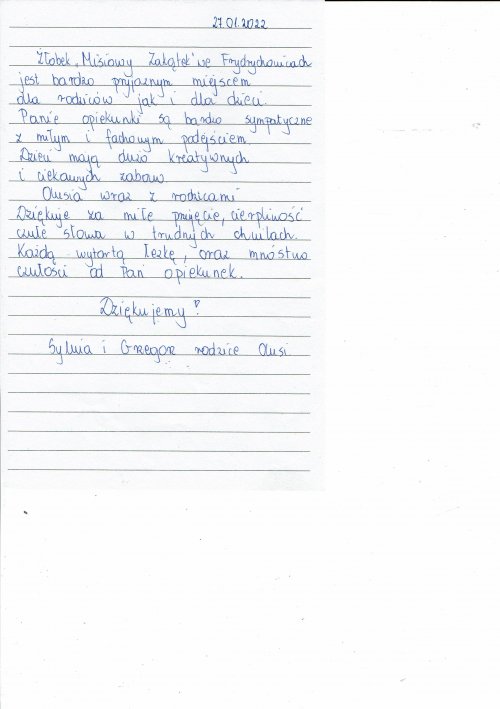 27.01.2022
Żłobek „Misiowy Zakątek" we Frydrychowicach
jest bardzo przyjaznym miejscem
dla rodziców jak i dla dzieci.
Panie opiekunki są bardzo sympatyczne
z miłym i fachowym podejściem.
Dzieci mają dużo kreatywnych
i ciekawych zabaw
Olusia wraz z rodzicami
Dziękuje za miłe przyjęcie, cierpliwość
czułe słowa w trudnych chwilach.
Każdą wytartą łezkę, oraz mnóstwo
czułości od Pań opiekunek.
Dziękujemy!
Sylwia i Grzegorz rodzice Olusi.